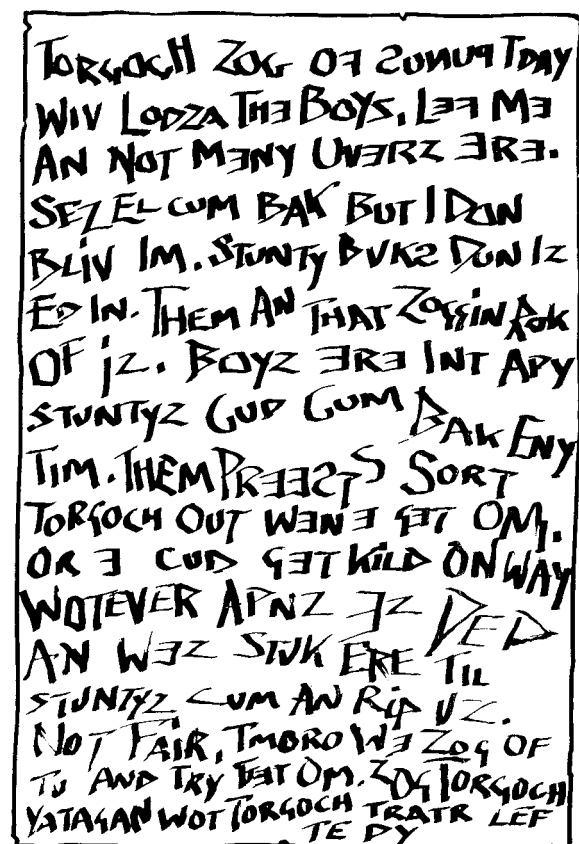 TORGOCH ZOG OF SUNUP TDAY
WIV LODZA THE BOYS, LEF ME
AN NOT MENY UVERZ ERE.
SEZ EL CUM BAK BUT I DON
BLIV IM. STUNTY BUKS DUN IZ
ED IN. THEM AN THAT ZOGGIN ROK
OF IZ. BOYZ ERE INT APY
STUNTYZ CUD CUM BAK ENY
TIM. THEM PREESTS SORT
TORGOCH OUT WEN E GET OM.
OR E CUD GET KILD ON WAY
WOTEVER APNZ EZ DED
AN WEZ STUK ERE TIL
STUNTYZ CUM AN RIP UZ.
NOT FAIR, TMORO WE ZOG OF
TU AND TRY GET OM. ZOG TORGOCH
YATAGAN WOT TORGOCH TRATR LEF
TE DY